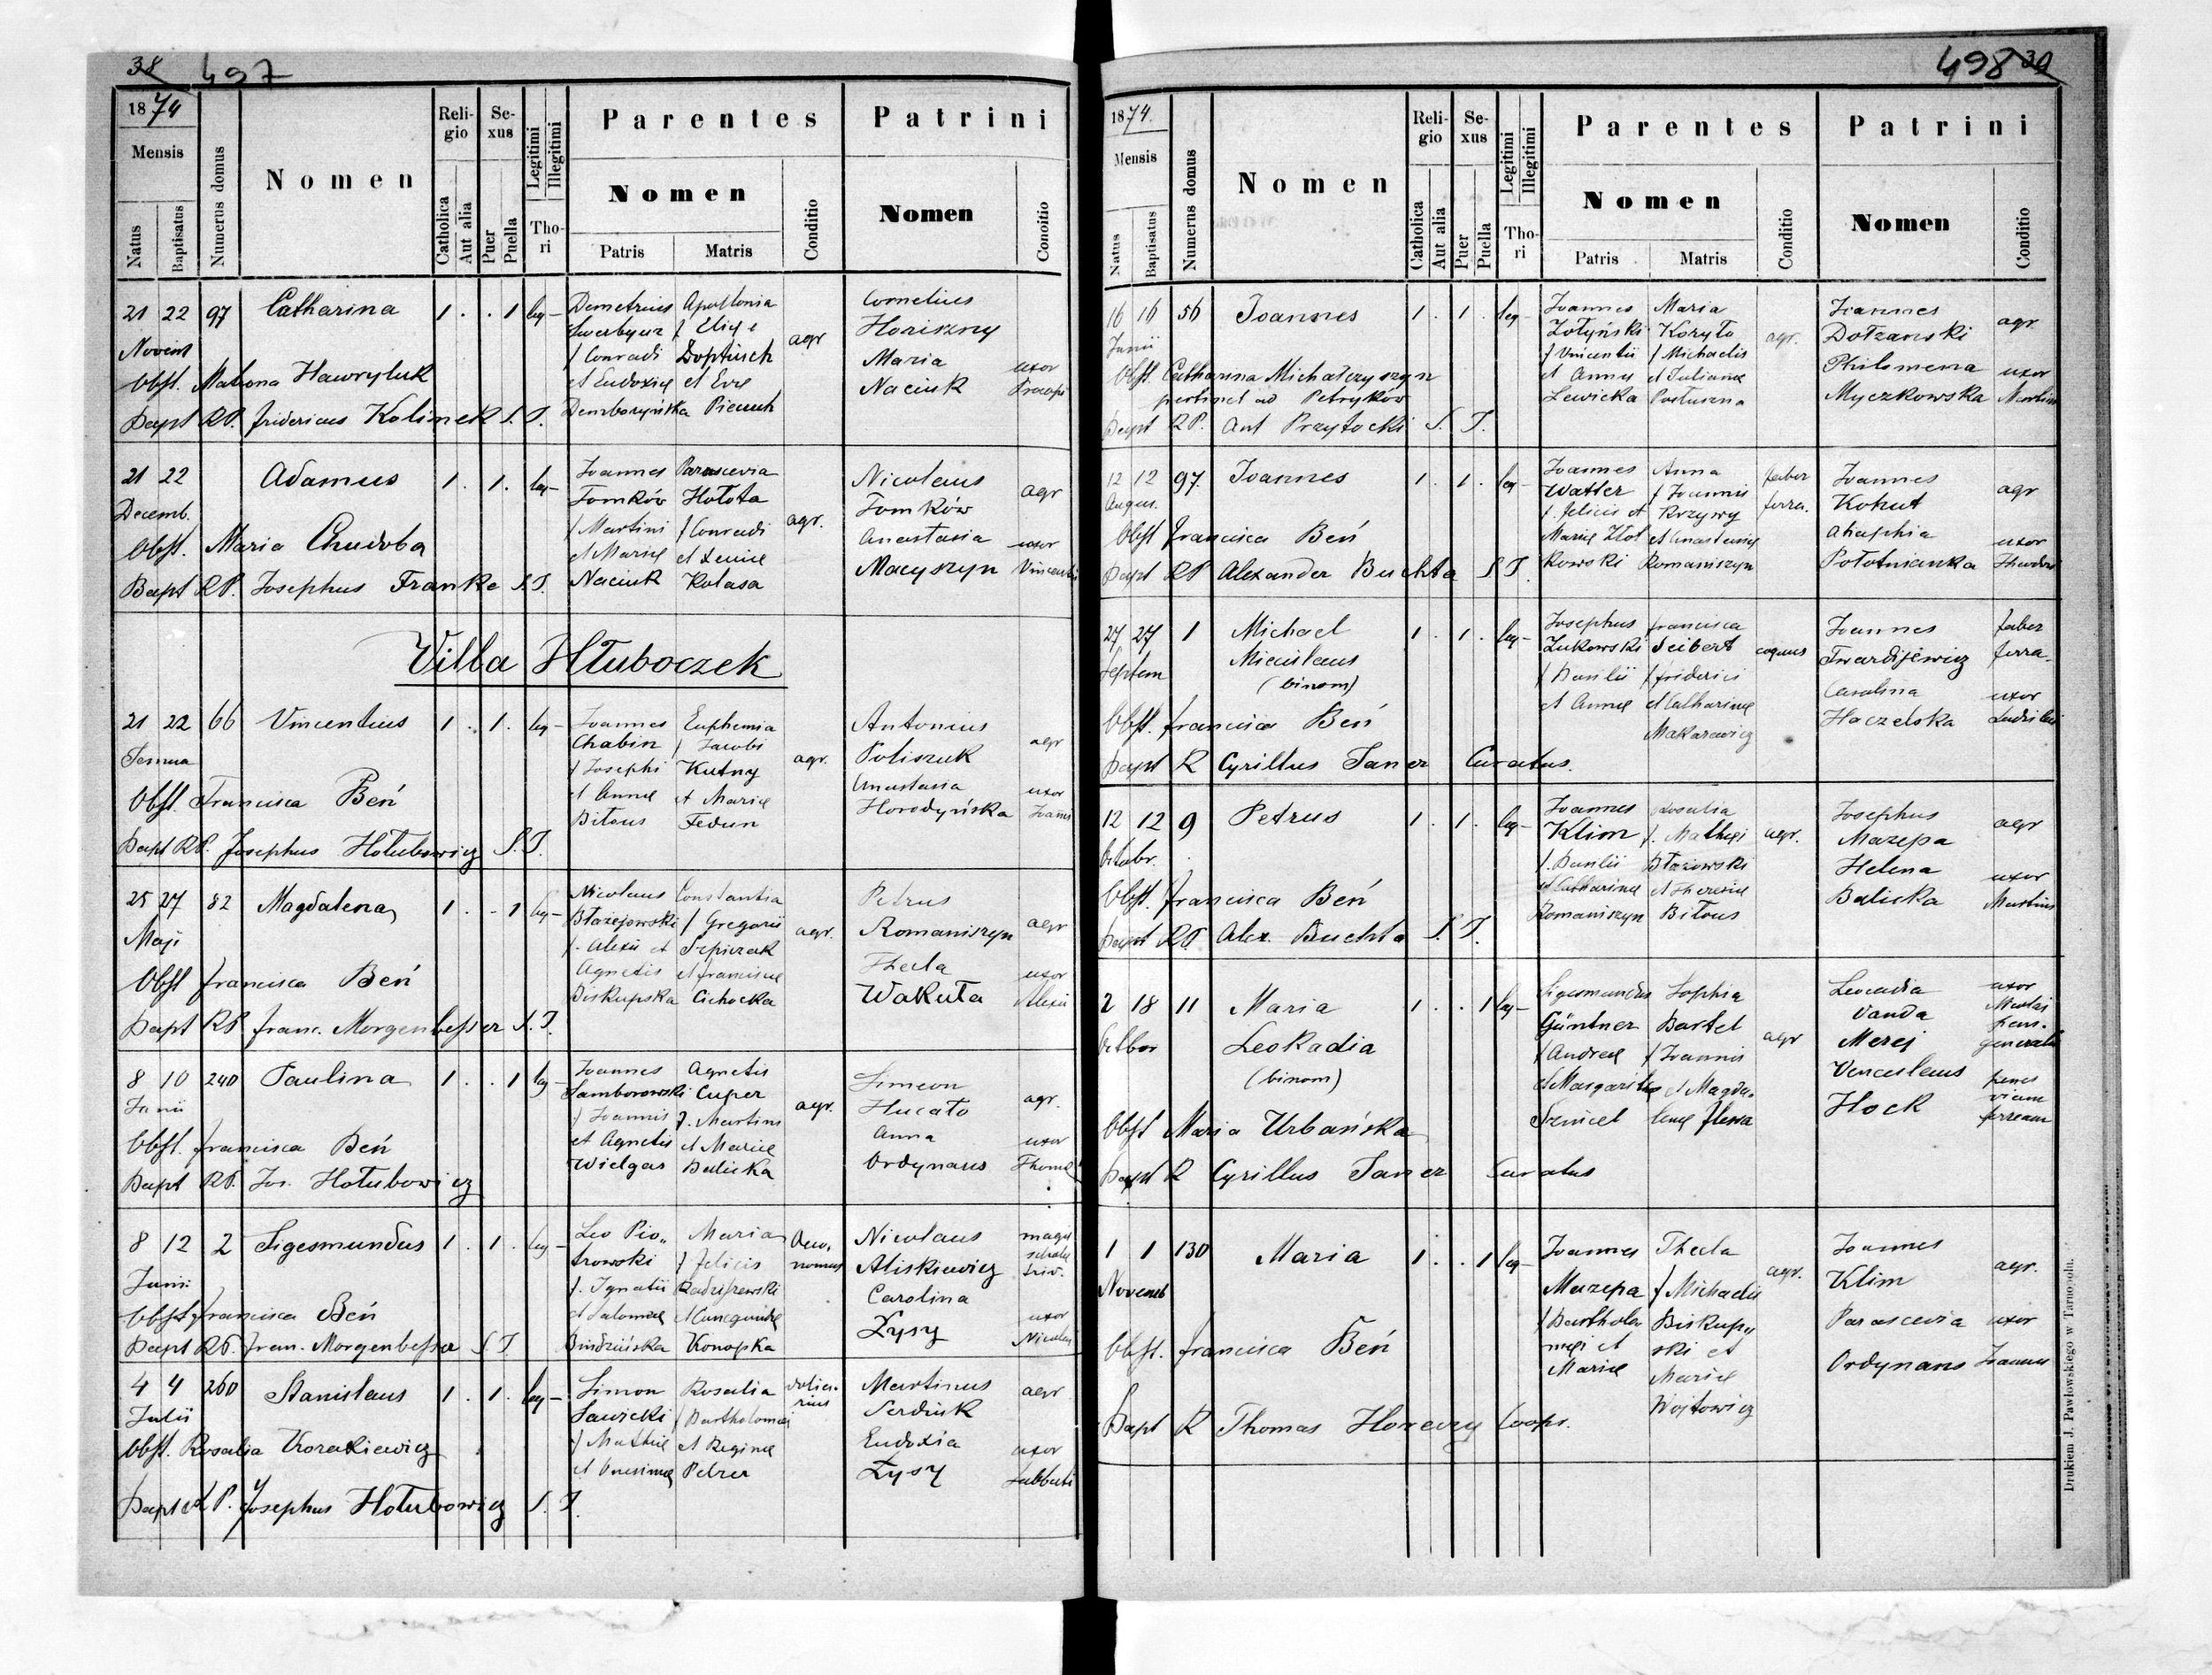 38 497
1874
Mensis
Natus
Baptisatus
Numerus domus
Nomen
Religio
Catholica
Aut alia
Sexus
Puer
Puella
Legitimi
Illegitimi
Thori
Parentes
Nomen
Patris
Matris
Conditio
Patrini
Nomen
Conditio
21 22 97 Catharina 1 . . 1 leg-
Novem
Demetrius
f Conradi
et Eudoxiæ
Demboryńska
Apollonia
f Eliæ
et Evæ
agr
Cornelius
Horiszny
Maria uxor
Naciuk Procopi
Obst. Matrona Hawryluk
Bapt RP. Fridericus Kolimek S. J.
21 22 Adamus 1 . 1 . leg-
Decemb.
Joannes
Tomków
f Martini
et Mariæ
Naciuk
Parascevia
Hołota
f Conradi
et Xeniæ
Kolasa
agr.
Nicolaus agr
Tomków
Anastasia uxor
Macyszyn Vincentii
Obst. Maria Chudoba
Bapt RP. Josephus Franke S. J.
Villa Hłuboczek
21 22 66 Vincentius 1 . 1 . leg-
Janua
Joannes
Chabin
f Josephi
et Annæ
Bitous
Euphemia
f Jacobi
Kutny
et Mariæ
Fedun
agr.
Antonius agr
Poliszuk
Anastasia uxor
Horodyńska Joannis
Obst. Francisca Beń
Bapt RP. Josephus Hołubowicz S. J.
25 27 82 Magdalena 1 . . 1 leg-
Maji
Nicolaus
Błażejowski
f. Alexii et
Agnetis
Biskupska
Constantia
f Gregorii
Szpiczak
et Franciscæ
Cichocka
agr.
Petrus
Romaniszyn agr
Thecla uxor
Wakuta Alexii
Obst Francisca Beń
Bapt RP Franc. Morgenbesser S. J.
8 10 240 Paulina 1 . . 1 leg-
Junii
Joannes
Samborowski
f Joannis
et Agnetis
Wielgas
Agnetis
Cuper
f. Martini
et Mariæ
Balicka
agr.
Simeon agr.
Hucało
Anna uxor
Ordynans Thomæ
Obst. Francisca Beń
Bapt RP. Jos. Hołubowicz
8 12 2 Sigesmundus 1 . 1 . leg-
Juni
Leo Pio„
trowski
f. Ignatii
et Salomeæ
Maria
f Felicis
Radziszewski
et Cunegundæ
Konopka
Oeco,
nomus
Nicolaus
Aliskiewicz
Carolina uxor
Łysy Nicolai
Obst. Francisca Beń
Bapt RP. Fran. Morgenbesser S. J.
4 4 260 Stanislaus 1 . 1 . leg-
Julii
Simon
Sawicki
f Mathiæ
et Onesimæ
Rosalia
f Bartholomæi
et Reginæ
Petzer
Martinus agr
Serdiuk
Eudoxia uxor
Łysy Sabbati
Obst. Rosalia Korakiewicz
Bapt RP. Josephus Hołubowicz S. J.
498 39
1874.
Mensis
Natus
Baptisatus
Numerus domus
Nomen
Religio
Catholica
Aut alia
Sexus
Puer
Puella
Legitimi
Illegitimi
Thori
Parentes
Nomen
Patris
Matris
Conditio
Patrini
Nomen
Conditio
16 16 56 Joannes 1 . 1 . leg-
Junii
Joannes
Żołyński
f Vincentii
et Annæ
Lewicka
Maria
Koryto
f Michaelis
et Julianæ
Postuszna
agr.
Joannes agr
Dołżanski
Philomena uxor
Myczkowska Martini
Obst. Catharina Michałczyszyn
pertinet ad Petryków
Bapt RP. Ant Przytocki S. J.
12 12 97. Joannes 1 . 1 . leg-
Augus.
Joannes
Watler
f. Felicis et
Mariæ Złot
kowski
Anna
f Joannis
Krzywy
et Anastasiæ
Romaniszyn
faber
ferra.
Joannes agr
Kohut
Ahaphia uxor
Połotnianka Theodori
Obst Francisca Beń
Bapt RP Alexander Buchta S J.
27 27 1 Michael 1 . 1 . leg-
Septem
Miecislaus
(binom)
Josephus
Żukowski
f Basilii
et Annæ
Francisca
Seibert
f Friderici
et Catharinæ
Makarewicz
coquus
Joannes faber
Twardijewicz ferra.
Carolina uxor
Haczelska Ladislai
Obst. Francisca Beń
Bapt R Cyrillus Janer Curatus.
12 12 9 Petrus 1 . 1 . leg-
Octobr.
Joannes
Klim
f. Basilii
et Catharinæ
Romaniszyn
Rosalia
f. Mathæi
Błażowski
et Theresiæ
Bitous
agr.
Josephus agr
Mazepa
Helena uxor
Balicka Martini
Obst. Francisca Beń
Bapt RP. Alex. Buchta S. J.
2 18 11 Maria 1 . . 1 leg-
Octbor
Leokadia
(binom)
Sigesmundus
Güntner
f Andreæ
et Margarithæ
Szmicel
Sophia
Bartel
f Joannis
et Magda.
lenæ Flessa
agr
Leocadia uxor
Vanda
Merej
Venceslaus penes
Hock viam
ferream
Obst Maria Urbańska
Bapt R Cyrillus Janer Curatus
1 1 130 Maria 1 . . 1 leg-
Novemb
Joannes
Mazepa
f Bartholo
mæi et
Mariæ
Thecla
f Michaelis
Biskupy
ski et
Mariæ
Wojtowicz
agr.
Joannes agr.
Klim
Parascevia uxor
Ordynans Joannis
Obst. Francisca Beń
Bapt R Thomas Horeczy Coop.
Drukiem J. Pawłowskiego w Tarnopolu.